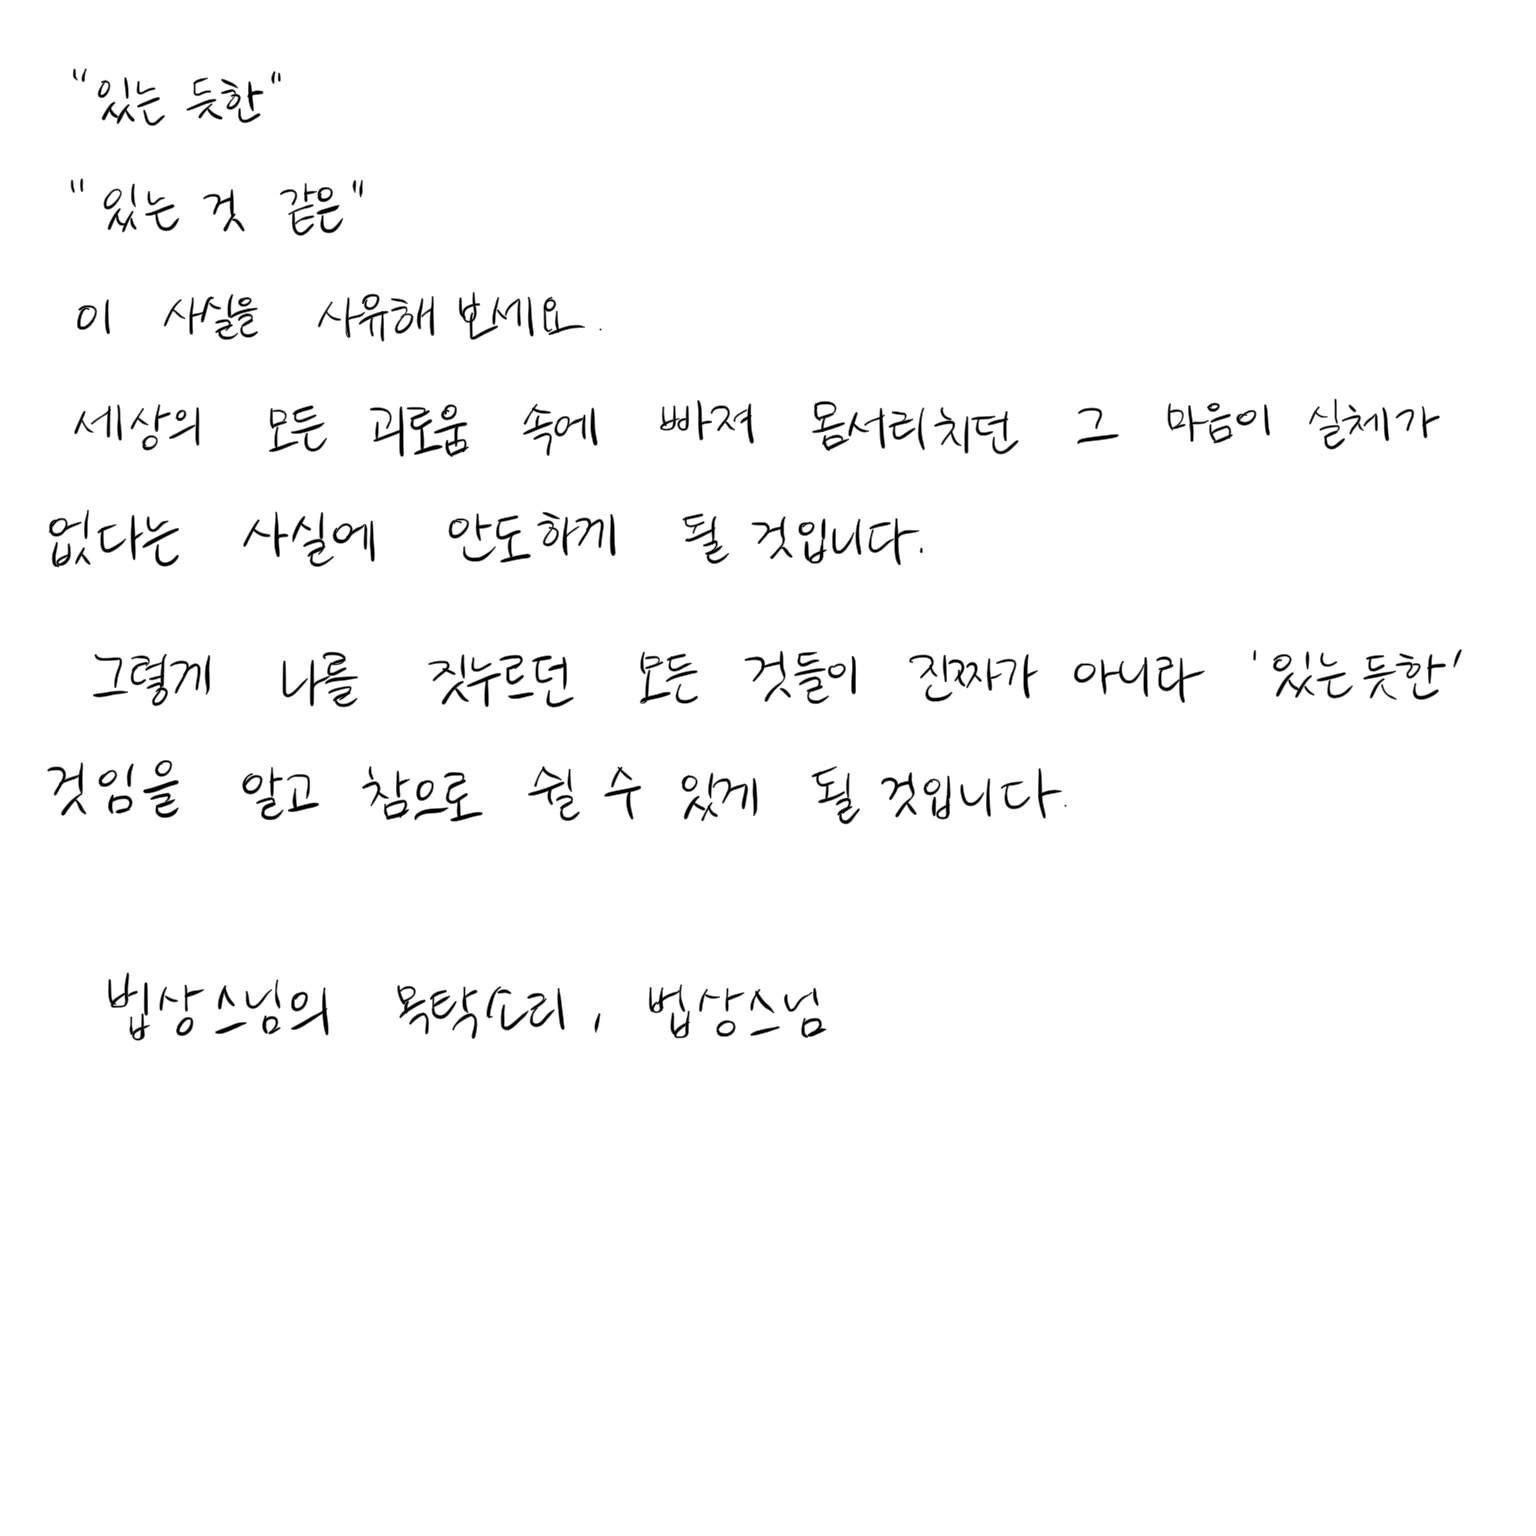 "있는 듯한"
"있는 것 같은"
이 사실을 사유해 보세요.
세상의 모든 괴로움 속에 빠져 몸서리치던 그 마음이 실체가
없다는 사실에 안도하게 될 것입니다.
그렇게 나를 짓누르던 모든 것들이 진짜가 아니라 '있는듯한'
것임을 알고 참으로 쉴 수 있게 될 것입니다.
법상스님의 목탁소리, 법상스님